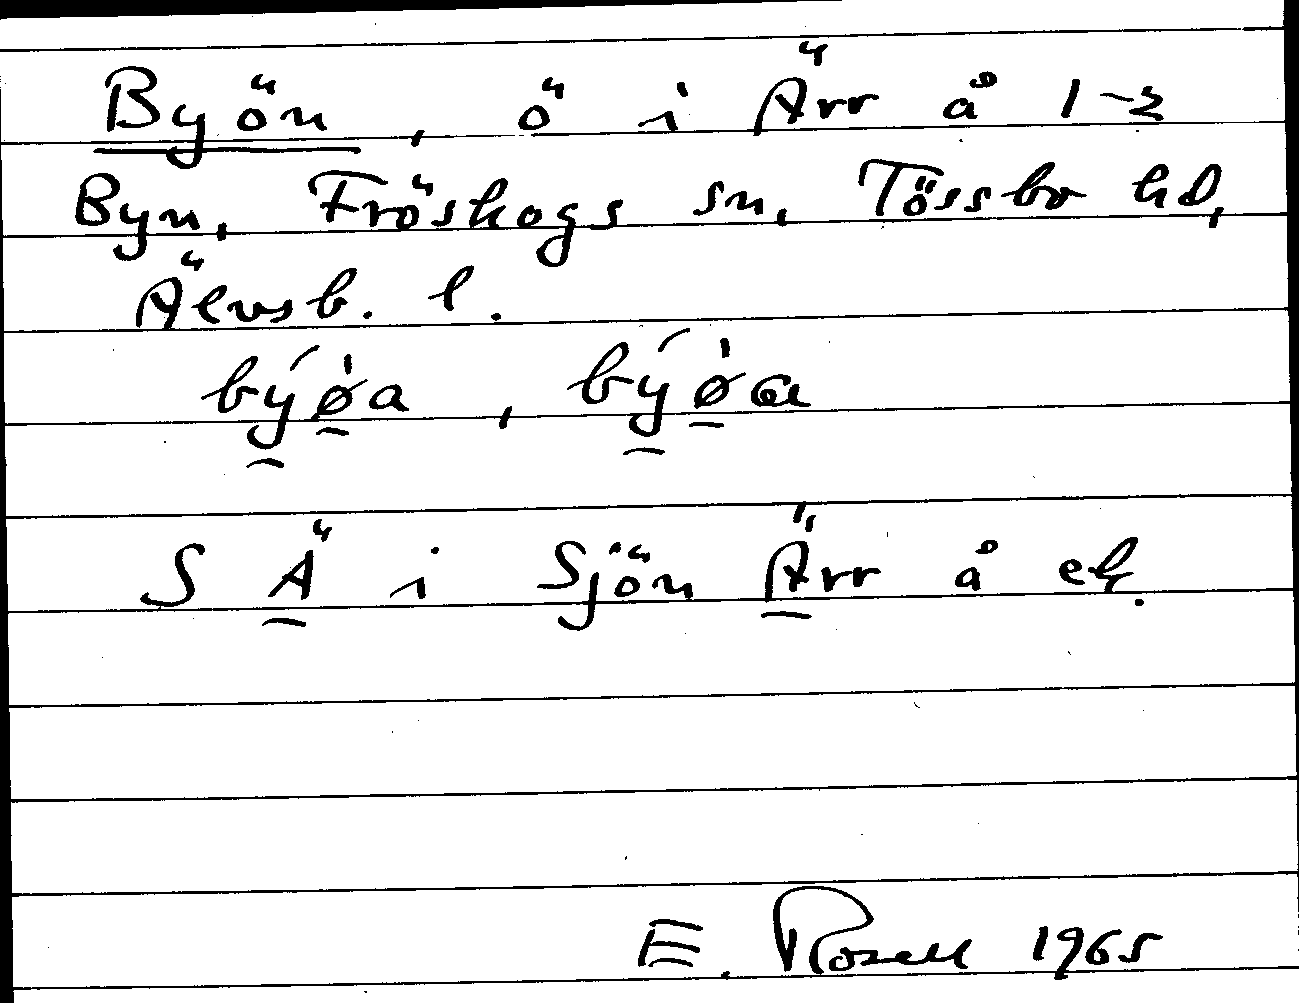 Byön, ö i Ärr å 1-2
Byn, Fröskogs sn, Tössbo hd,
Älvsb. l.
býøa, býøa
S Ä i Sjön Ärr å ek.
E. Rosell 1965